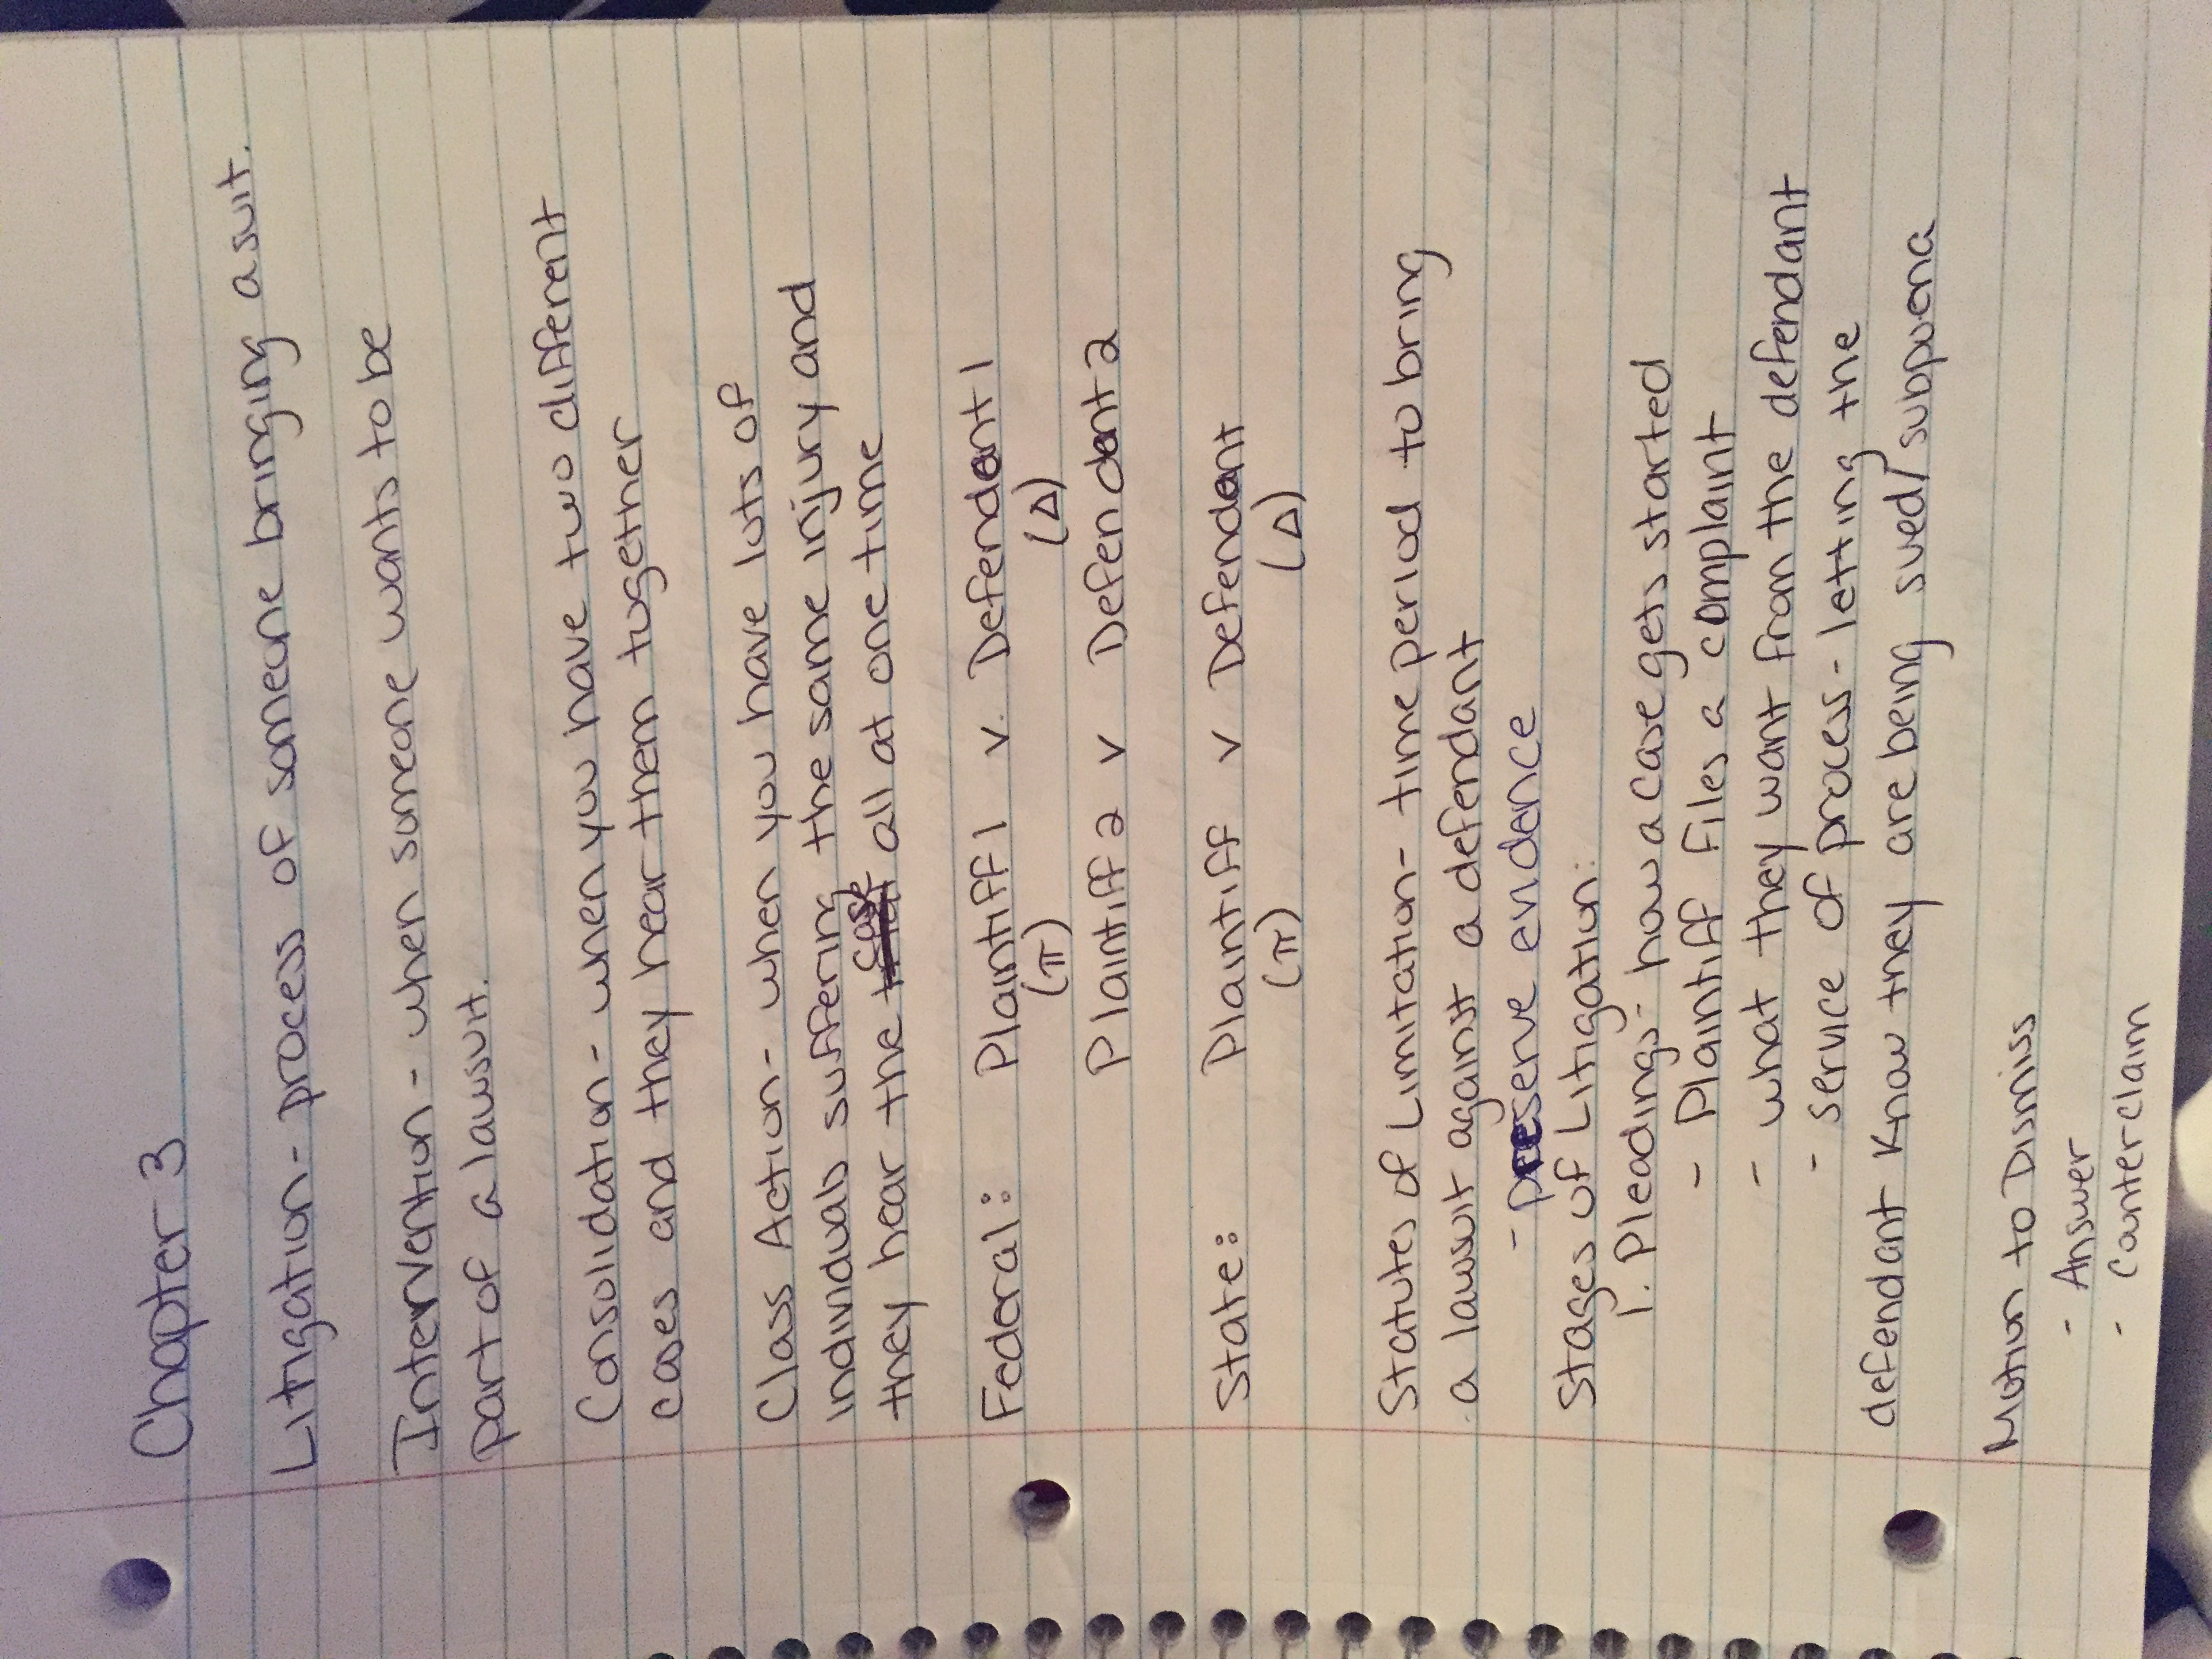 Chapter 3
Litigation - process of someone bringing a suit.
Intervention - when someone wants to be
part of a lawsuit.
Consolidation - when you have two different
cases and they hear them together
Class Action - when you have lots of
individuals suffering the same injury and
they hear the case all at one time
Federal: Plaintiff 1 v. Defendant 1
(π) (Δ)
Plaintiff 2 v Defendant 2
State: Plaintiff v Defendant
(π) (Δ)
Statutes of Limitation - time period to bring
a lawsuit against a defendant
- preserve evidence
Stages of Litigation:
1. Pleadings - how a case gets started
- Plaintiff files a complaint
- what they want from the defendant
- service of process - letting the
defendant know they are being sued/subpoena
Motion to Dismiss
- Answer
- Counterclaim